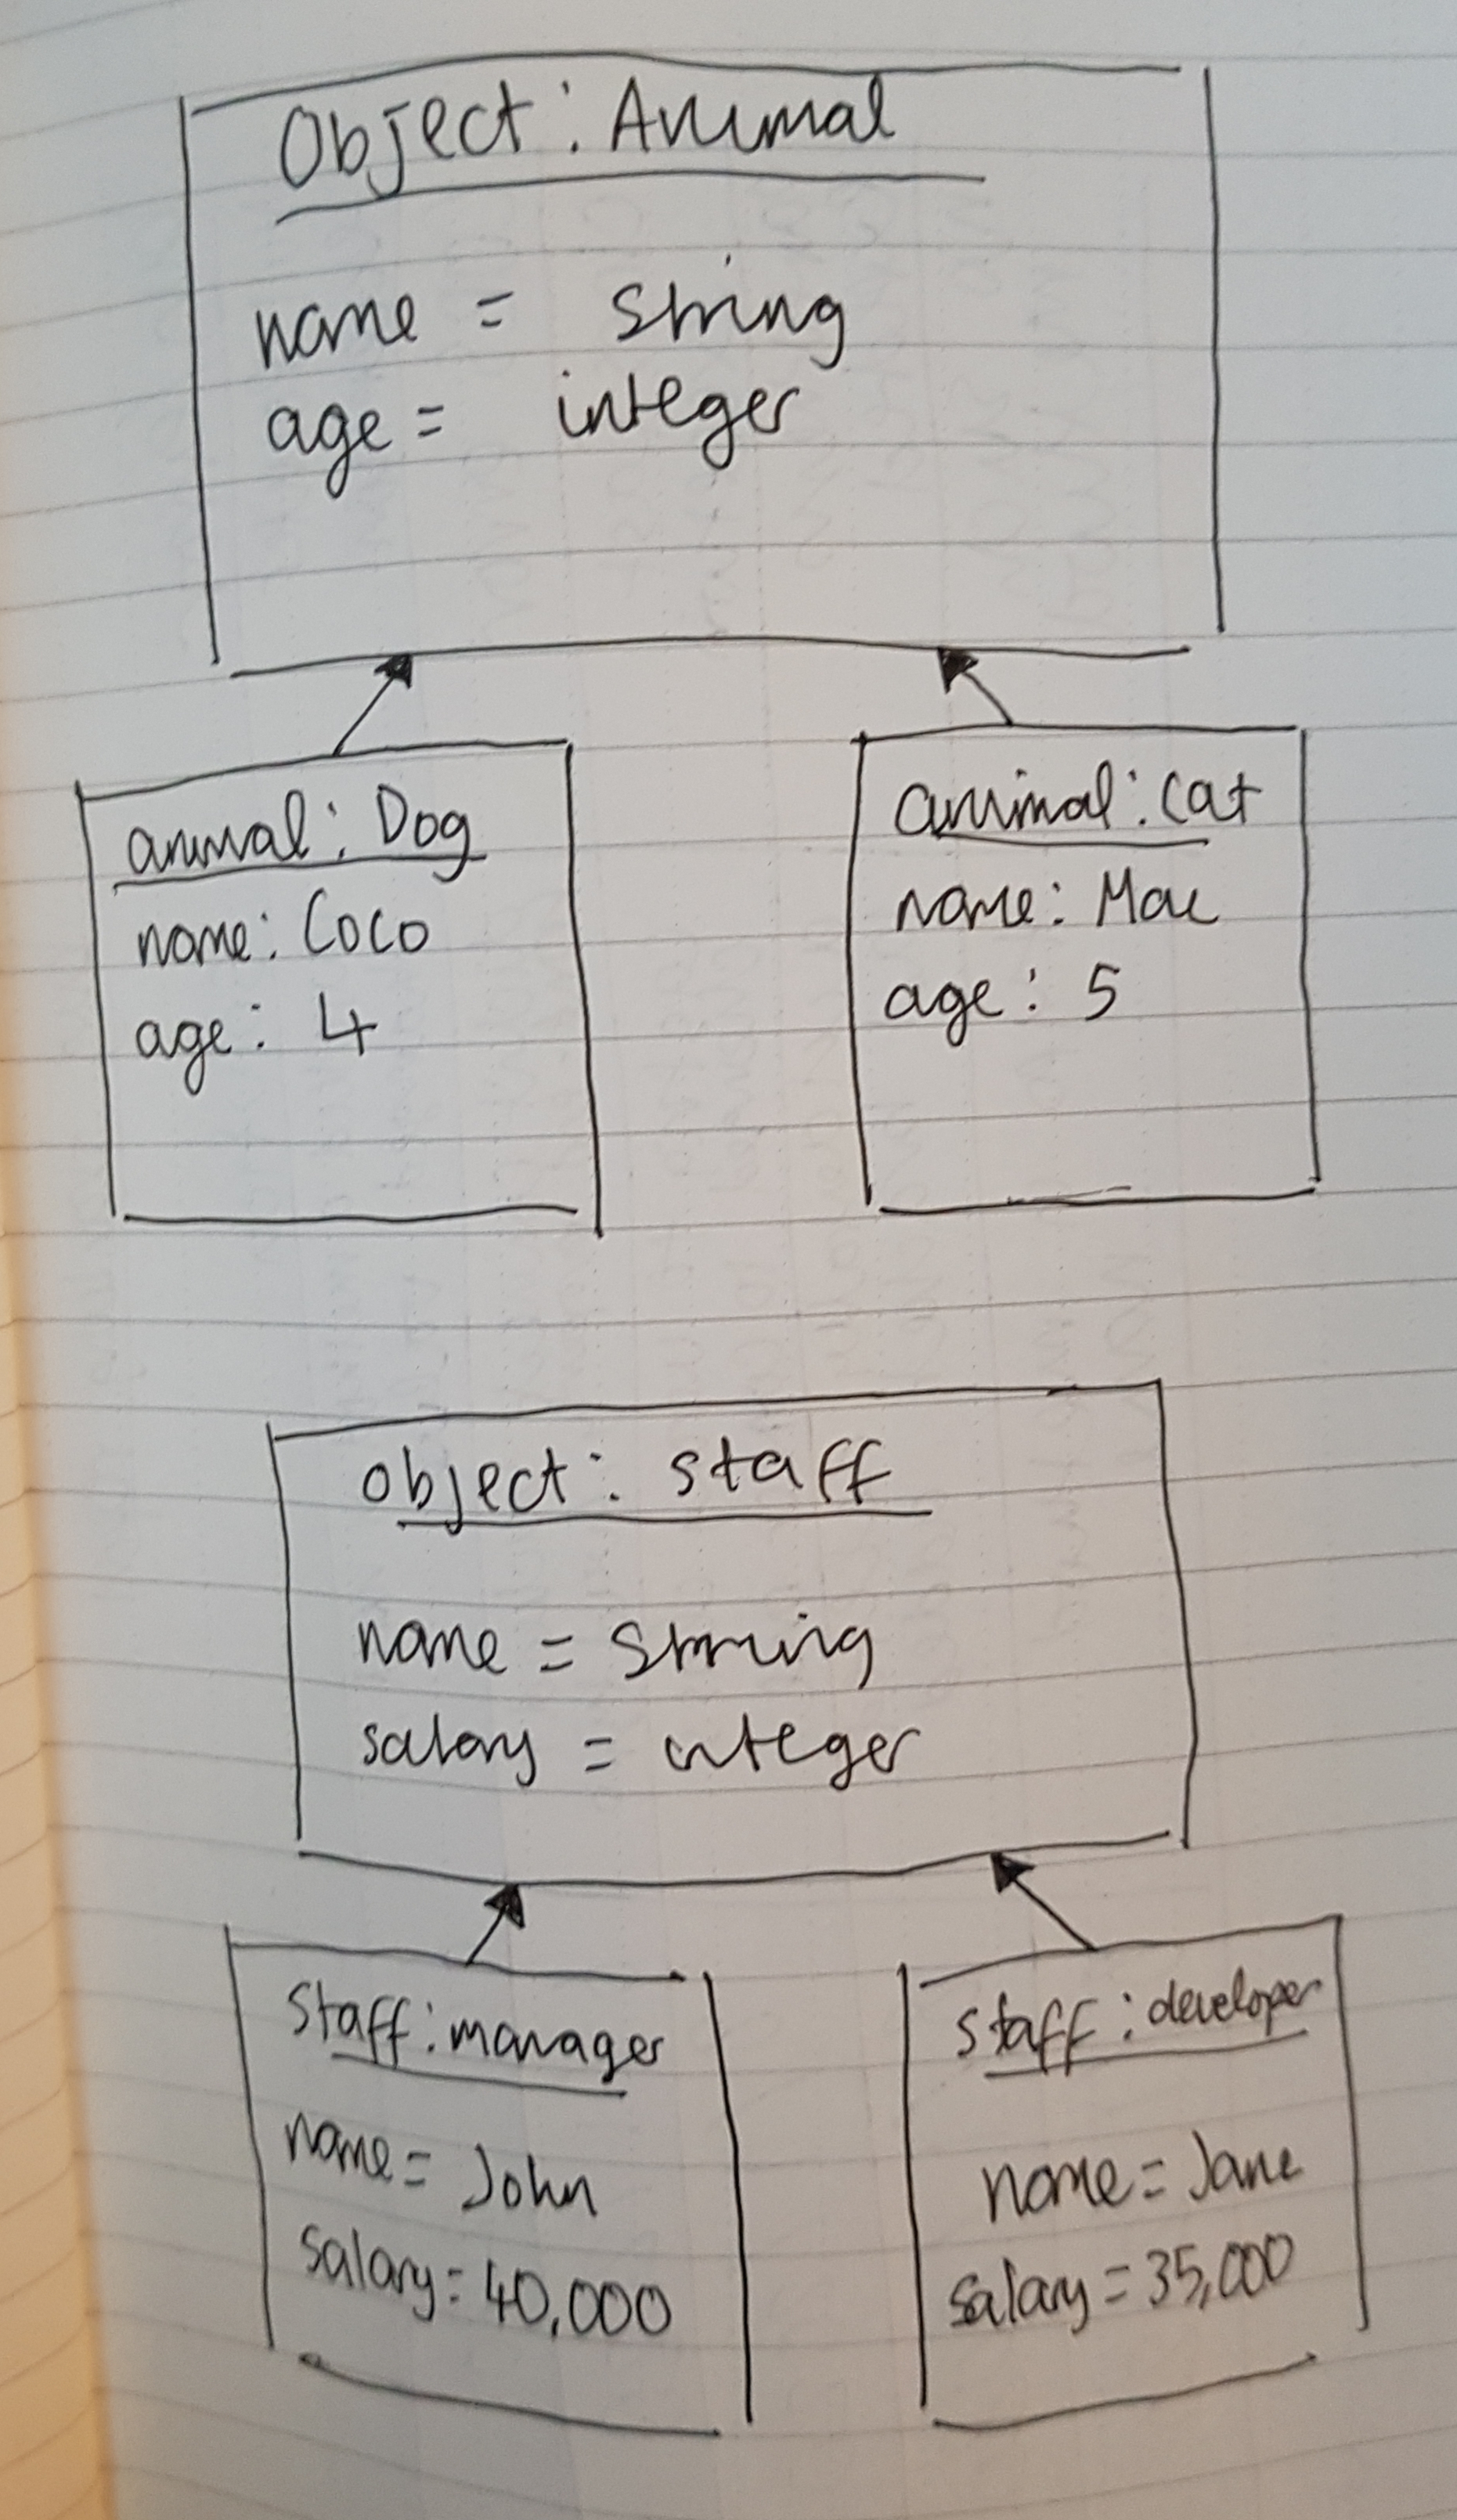 Object: Animal
name = string
age = integer
animal: Dog
name: Coco
age: 4
animal: cat
name: Mac
age: 5
object: staff
name = string
salary = integer
staff: manager
name = John
salary = 40,000
staff: developer
name = Jane
salary = 35,000